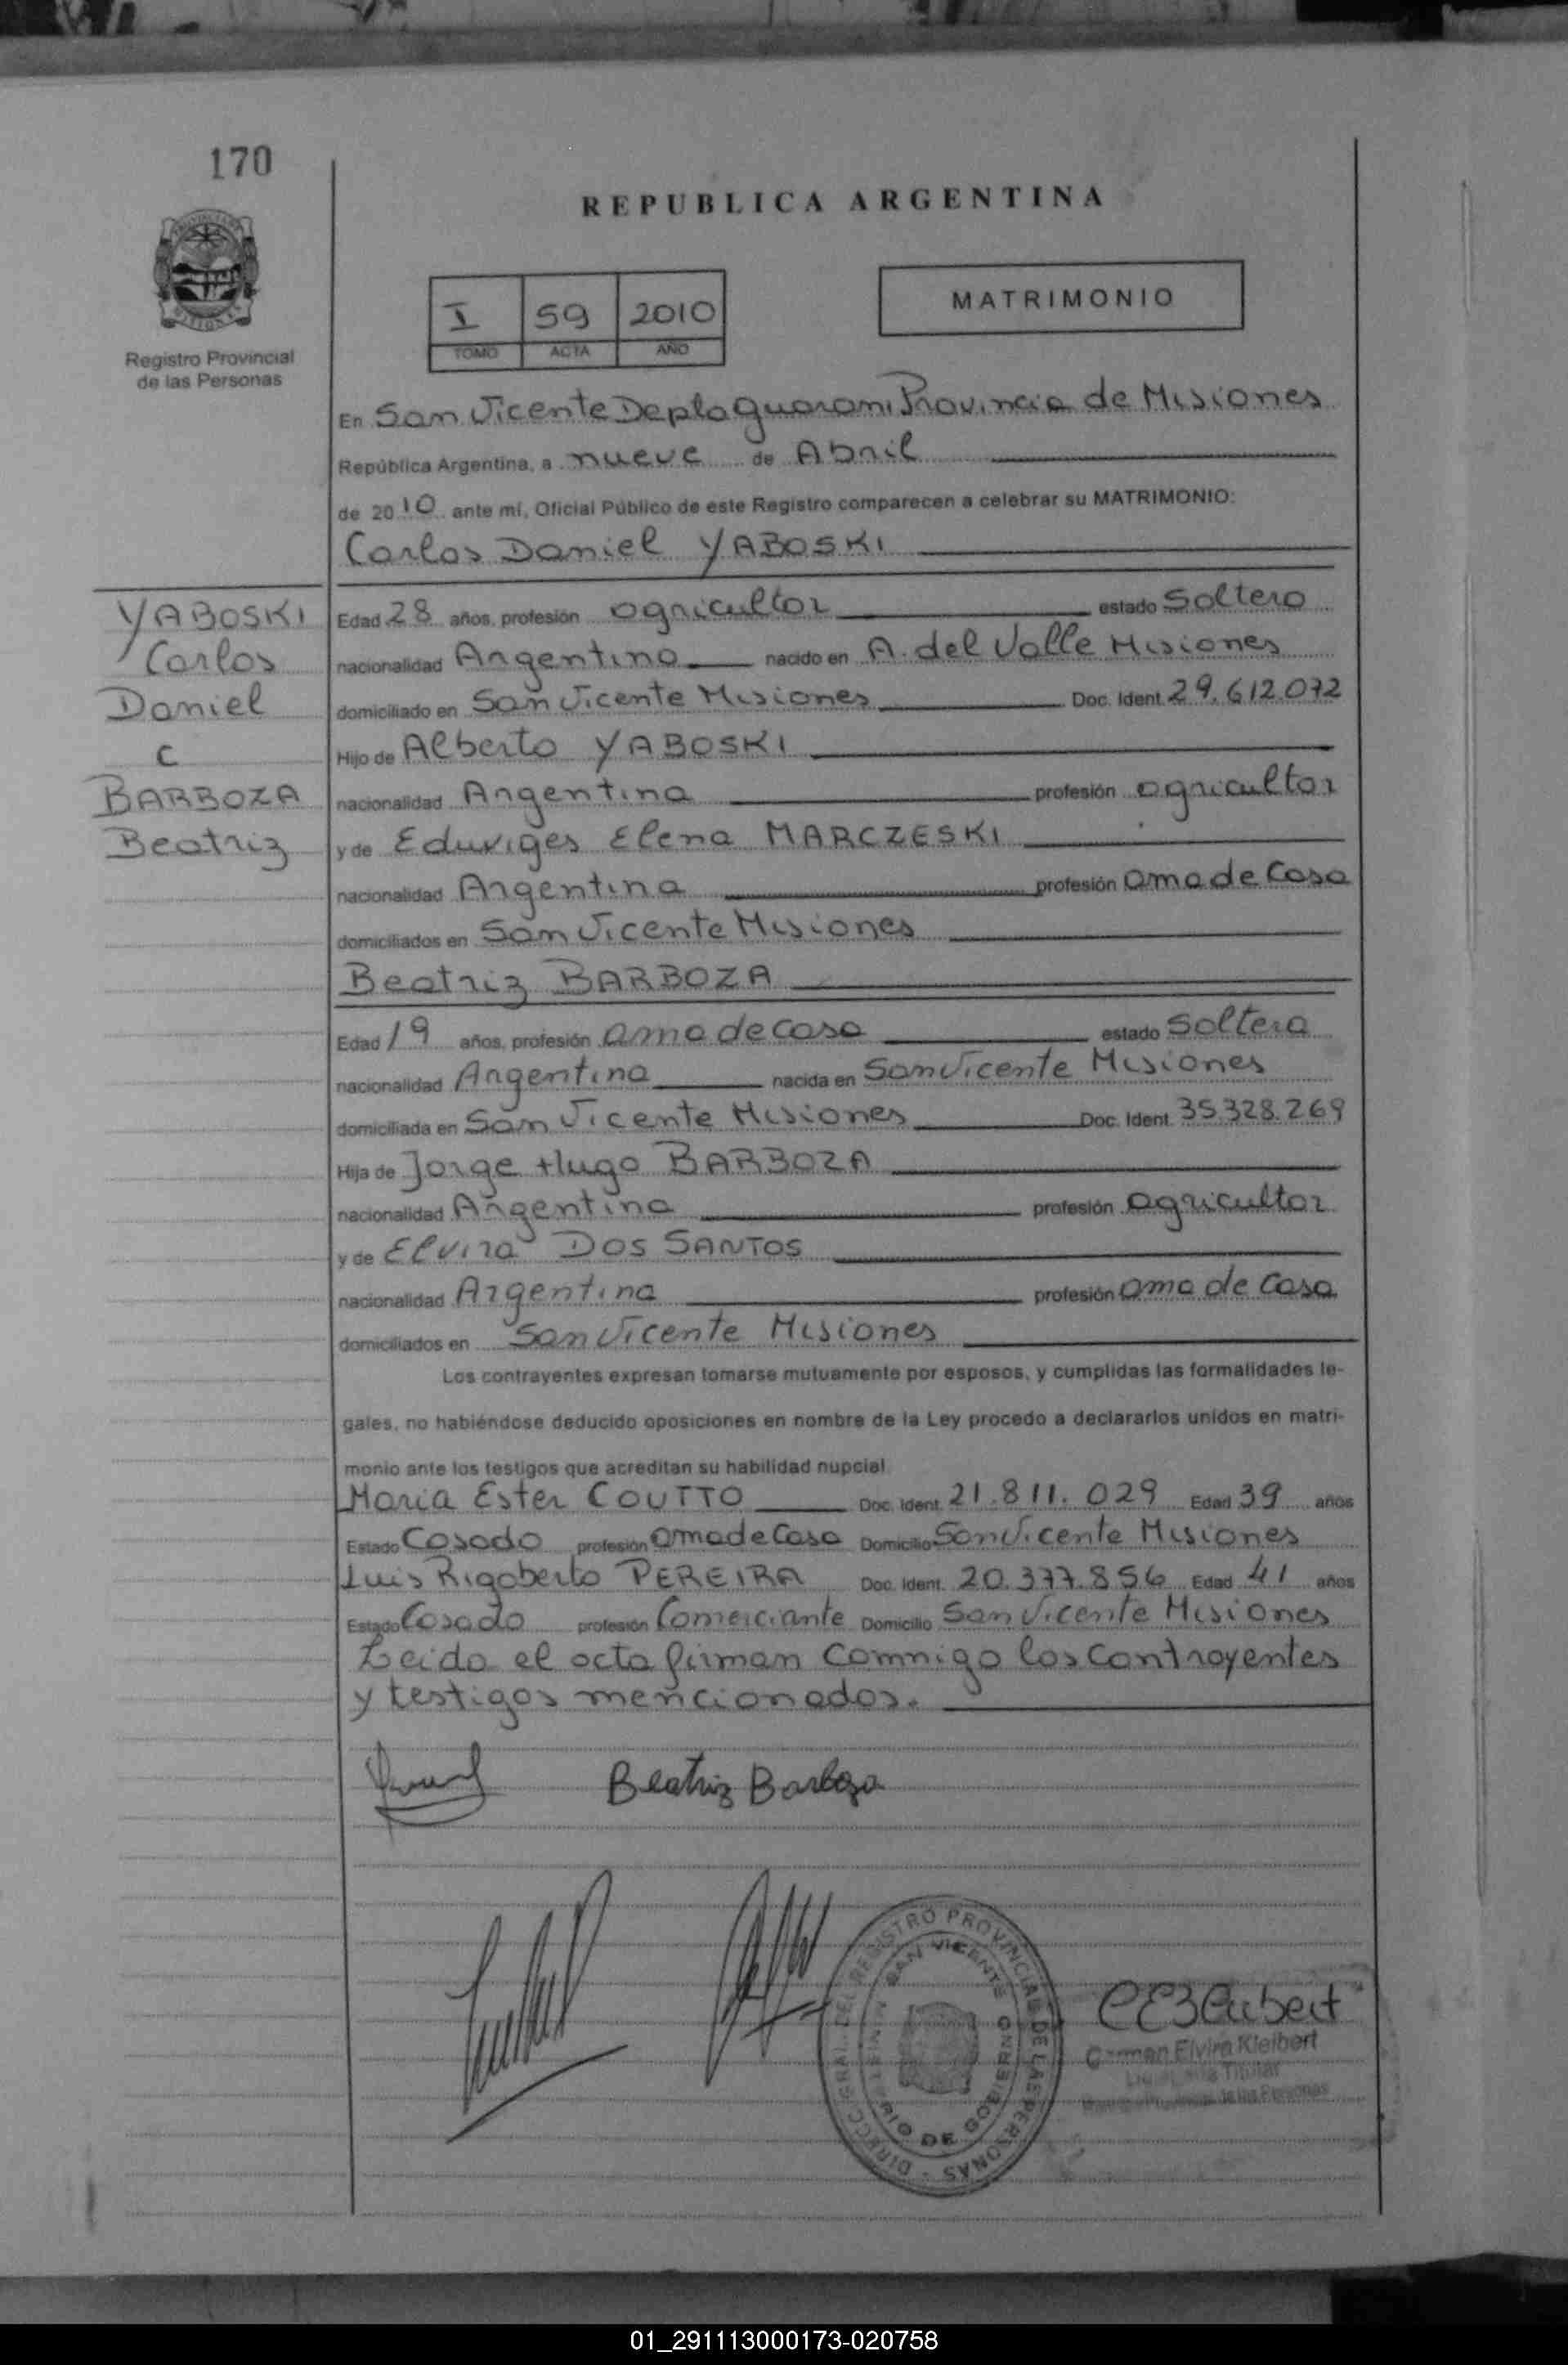 170
REPUBLICA ARGENTINA
Registro Provincial
de las Personas
I 59 2010
TOMO ACTA AÑO
MATRIMONIO
En San Vicente Depto guarani Provincia de Misiones
República Argentina, a nueve de Abril
de 2010 ante mí, Oficial Público de este Registro comparecen a celebrar su MATRIMONIO:
Carlos Daniel YABOSKI
YABOSKI
Carlos
Daniel
C
BARBOZA
Beatriz
Edad 28 años, profesión agricultor estado Soltero
nacionalidad Argentina nacido en A. del Valle Misiones
domiciliado en San Vicente Misiones Doc. Ident. 29.612.072
Hijo de Alberto YABOSKI
nacionalidad Argentina profesión agricultor
y de Eduviges Elena MARCZESKI
nacionalidad Argentina profesión ama de Casa
domiciliados en San Vicente Misiones
Beatriz BARBOZA
Edad 19 años, profesión ama de casa estado Soltera
nacionalidad Argentina nacida en San Vicente Misiones
domiciliada en San Vicente Misiones Doc. Ident. 35.328.269
Hija de Jorge Hugo BARBOZA
nacionalidad Argentina profesión agricultor
y de Elvira DOS SANTOS
nacionalidad Argentina profesión ama de Casa
domiciliados en San Vicente Misiones
Los contrayentes expresan tomarse mutuamente por esposos, y cumplidas las formalidades le-
gales, no habiéndose deducido oposiciones en nombre de la Ley procedo a declararlos unidos en matri-
monio ante los testigos que acreditan su habilidad nupcial.
Maria Ester COUTTO Doc. Ident. 21.811.029 Edad 39 años
Estado Casado profesión ama de Casa Domicilio San Vicente Misiones
Luis Rigoberto PEREIRA Doc. Ident. 20.377.856 Edad 41 años
Estado Casado profesión Comerciante Domicilio San Vicente Misiones
Leida el acta firman Comnigo los Contrayentes
y testigos mencionados.
Beatriz Barboza
DEL REGISTRO PROVINCIAL DE LAS PERSONAS
SAN VICENTE
DE GOBIERNO
Carmen Elvira Kleibert
Titular
de las Personas
01_291113000173-020758